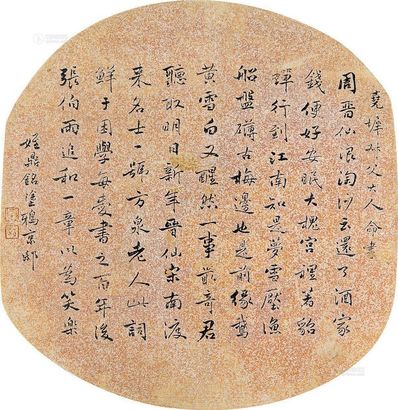 堯墀叔父大人命書
周晉仙浪淘沙云還了酒家
錢便好安眠大槐宮裡著貂
蟬行到江南知是夢雪壓漁
船盤礴古梅邊也是前緣鵞
黃雪白又醒然一事最奇君
聽取明日新年晉仙宋南渡
來名士一號方泉老人此詞
鮮于困學每愛書之百年後
張伯雨追和一章以為笑樂
姪鼎銘塗鴉京邸